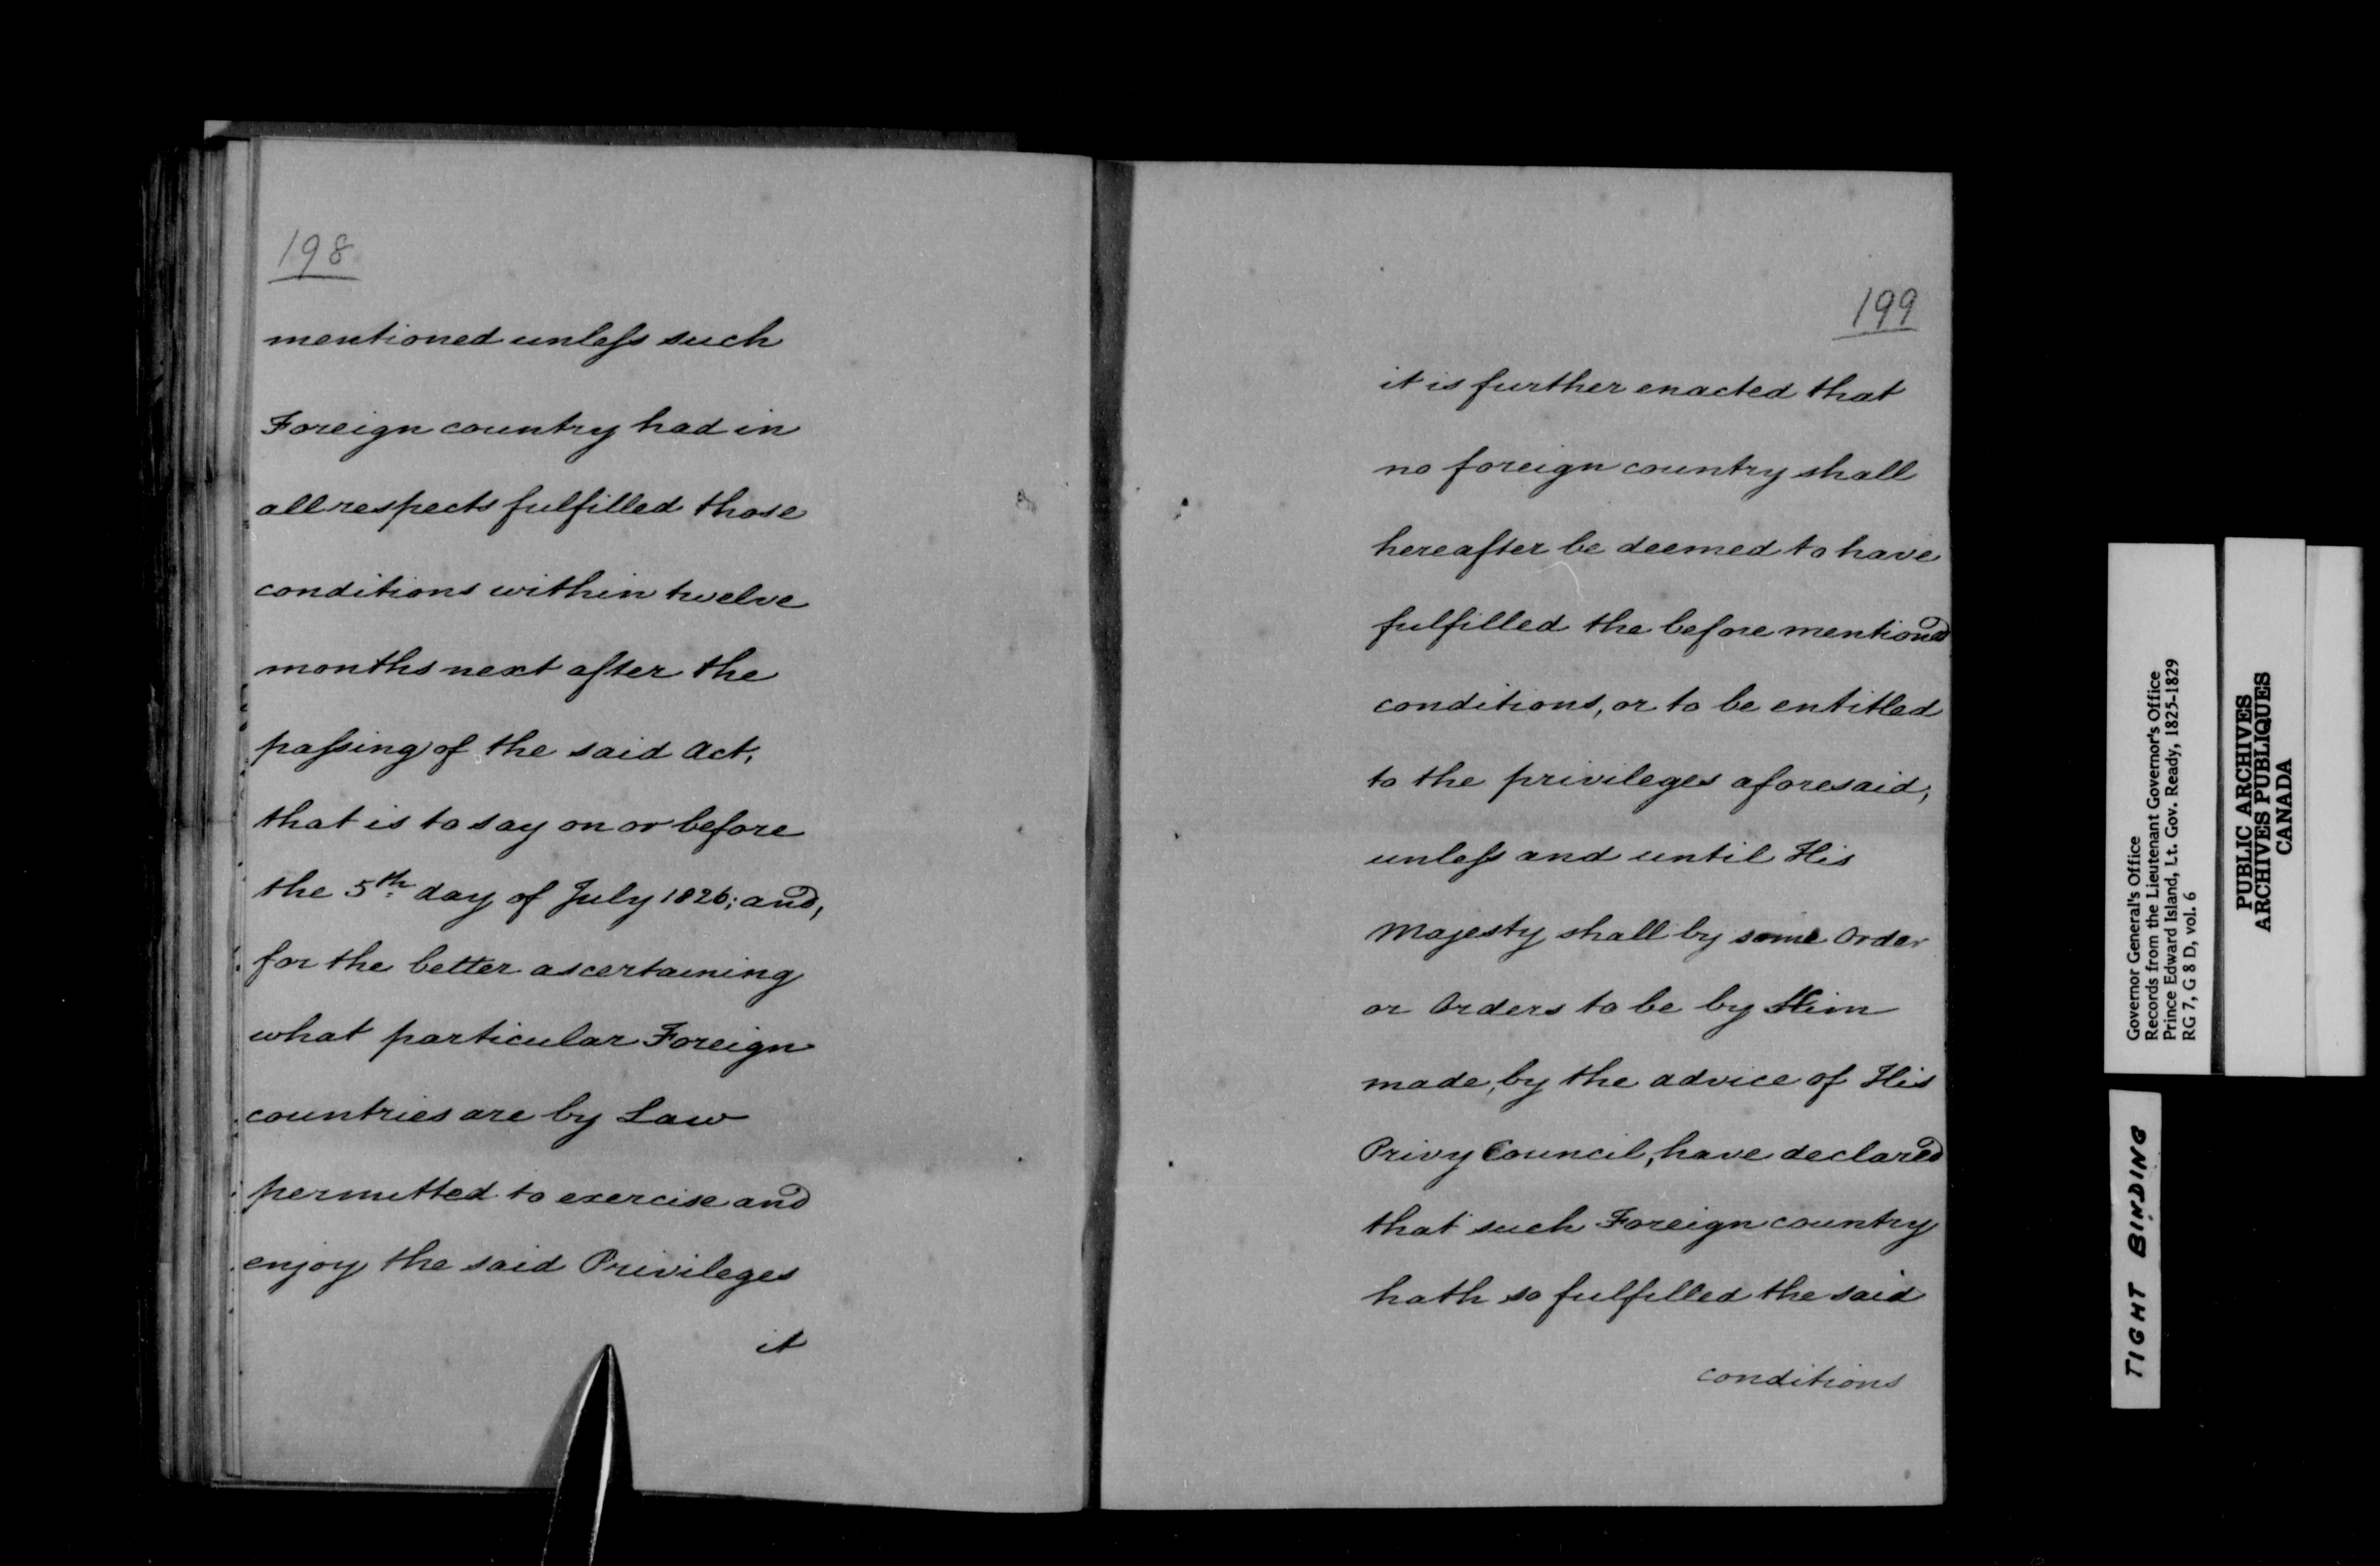 198
mentioned unless such
Foreign country had in
all respects fulfilled those
conditions within twelve
months next after the
passing of the said Act,
that is to say on or before
the 5th day of July 1826; and,
for the better ascertaining
what particular Foreign
countries are by Law
permitted to exercise and
enjoy the said Privileges
it
199
it is further enacted that
no foreign country shall
hereafter be deemed to have
fulfilled the before mentioned
conditions, or to be entitled
to the privileges aforesaid,
unless and until His
Majesty shall by some Order
or Orders to be by Him
made, by the advice of His
Privy Council, have declared
that such Foreign country
hath so fulfilled the said
conditions
Governor General's Office
Records from the Lieutenant Governor's Office
Prince Edward Island, Lt. Gov. Ready, 1825-1829
RG 7, G 8 D, vol. 6
PUBLIC ARCHIVES
ARCHIVES PUBLIQUES
CANADA
TIGHT BINDING